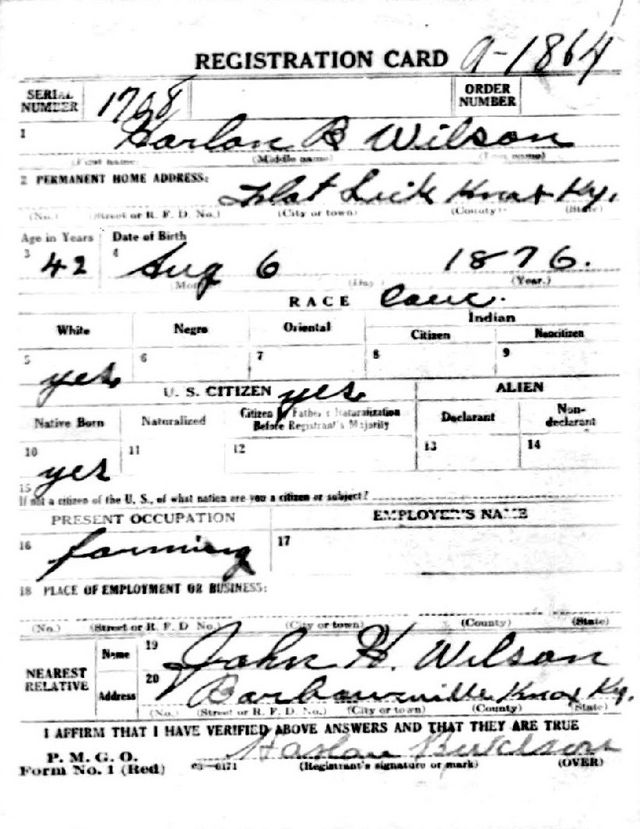 REGISTRATION CARD A-1864
SERIAL NUMBER 1768 ORDER NUMBER
1 Harlan B Wilson
(First name) (Middle name) (Last name)
2 PERMANENT HOME ADDRESS: Flat Lick Knox Ky.
(No.) (Street or R. F. D. No.) (City or town) (County) (State)
Age in Years Date of Birth
3 42 4 Aug 6 1876.
(Day) (Year.)
RACE Cauc.
White Negro Oriental Indian
Citizen Noncitizen
5 yes 6 7 8 9
U. S. CITIZEN yes ALIEN
Native Born Naturalized Citizen by Father's Naturalization Before Registrant's Majority Declarant Non-declarant
10 yes 11 12 13 14
15
If not a citizen of the U. S., of what nation are you a citizen or subject?
PRESENT OCCUPATION EMPLOYER'S NAME
16 farming 17
18 PLACE OF EMPLOYMENT OR BUSINESS:
(No.) (Street or R. F. D. No.) (City or town) (County) (State)
NEAREST RELATIVE Name 19 John H. Wilson
Address 20 Barbourville Knox Ky.
(No.) (Street or R. F. D. No.) (City or town) (County) (State)
I AFFIRM THAT I HAVE VERIFIED ABOVE ANSWERS AND THAT THEY ARE TRUE
P. M. G. O. Harlan B Wilson
Form No. 1 (Red) 03—6171 (Registrant's signature or mark) (OVER)